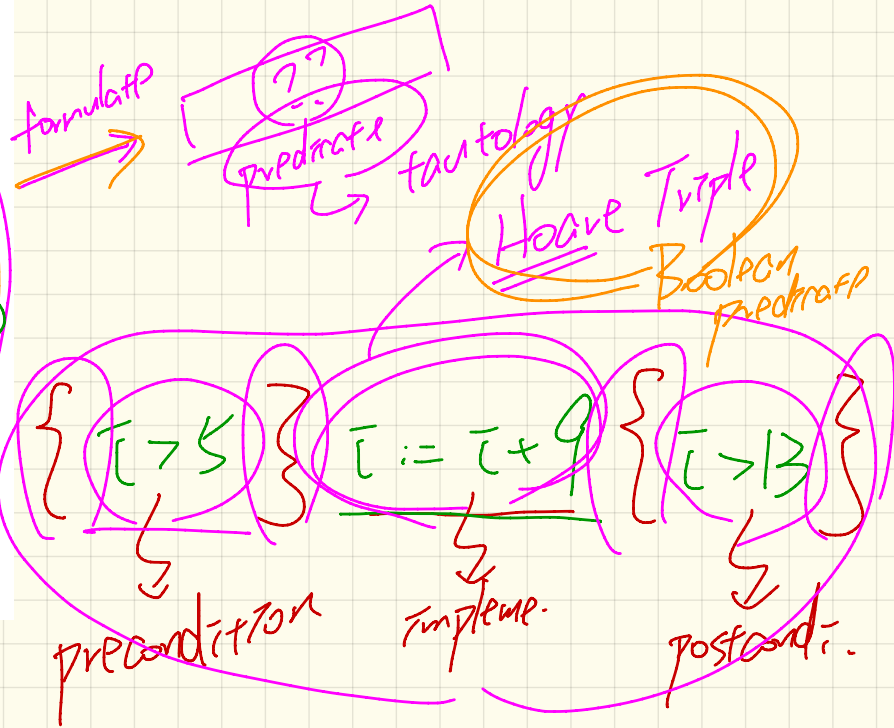 formulate
??
predicate
tautology
Hoare Triple
Boolean
predicate
{ i > 5 } i := i + 9 { i > 13 }
precondition
impleme.
postcondi.